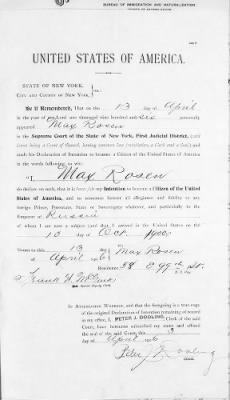 BUREAU OF IMMIGRATION AND NATURALIZATION
UNITED STATES OF AMERICA.
STATE OF NEW YORK,
CITY AND COUNTY OF NEW YORK, } ss.:
Be it Remembered, That on the 13 day of April
in the year of our Lord one thousand nine hundred and six personally
appeared Max Rosen in
the Supreme Court of the State of New York, First Judicial District, (said
Court being a Court of Record, having common law jurisdiction, a Clerk and a Seal) and
made his Declaration of Intention to become a Citizen of the United States of America
in the words following, to wit:
I, Max Rosen
do declare on oath, that it is bona fide my Intention to become a Citizen of the United
States of America, and to renounce forever all allegiance and fidelity to any
foreign Prince, Potentate, State or Sovereignty whatever, and particularly to the
Emperor of Russia
of whom I am now a subject and that I arrived in the United States on the
10 day of Oct. 1900.
Sworn to this 13 day
of April 1906 } Max Rosen
Residence 38 E. 99th St.
Special Deputy Clerk
IN ATTESTATION WHEREOF, and that the foregoing is a true copy
of the original Declaration of Intention remaining of record
in my office, I, PETER J. DOOLING, Clerk of the said
Court, have hereunto subscribed my name and affixed
the seal of the said Court this 13
day of April 1906
Peter J. Dooling